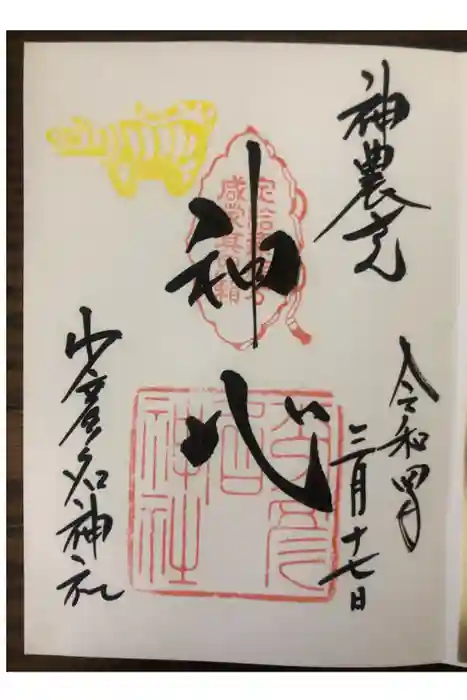 神農さん
令和四年
三月十七日
神心
少彦名神社
少彦名神社